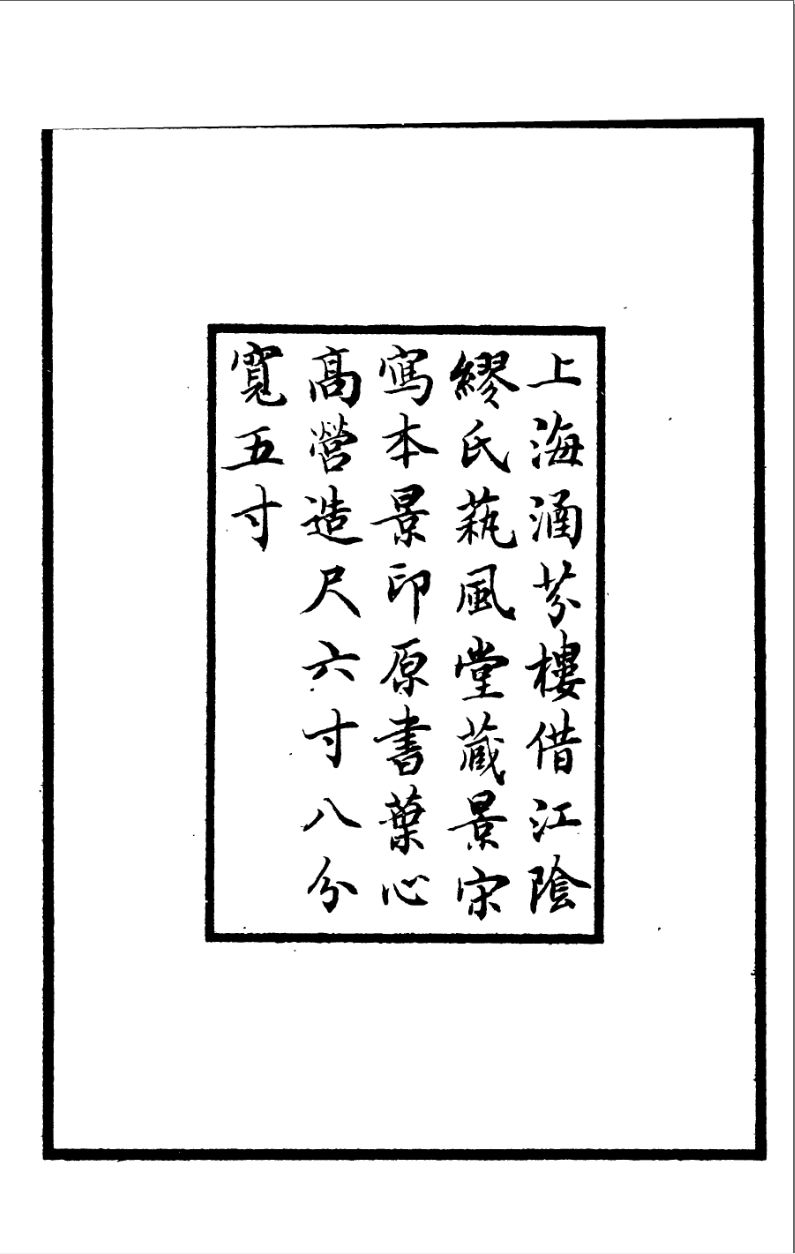 上海涵芬樓借江陰
繆氏蓺風堂藏景宋
寫本景印原書葉心
高營造尺六寸八分
寬五寸